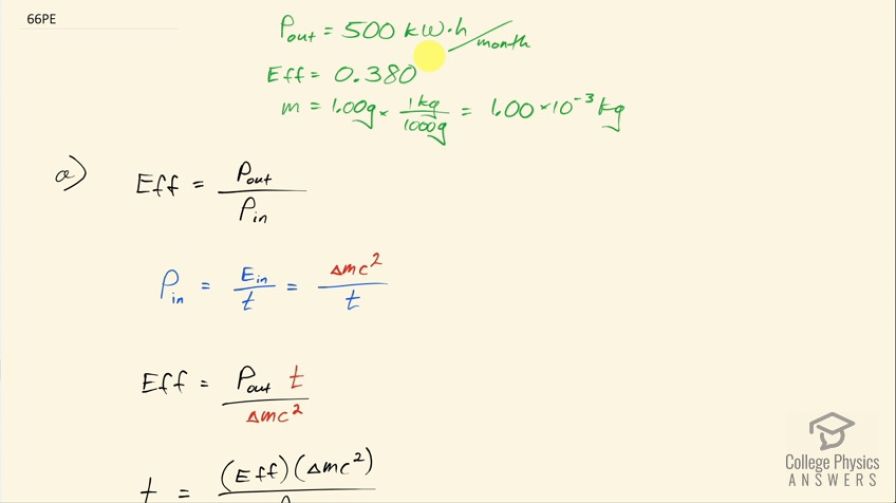 66PE
Pout = 500 kW·h/month
Eff = 0.380
m = 1.00g × 1kg/1000g = 1.00 × 10⁻³ kg
a) Eff = Pout/Pin
Pin = Ein/t = Δmc²/t
Eff = Pout t/Δmc²
t = (Eff)(Δmc²)
College Physics
ANSWERS